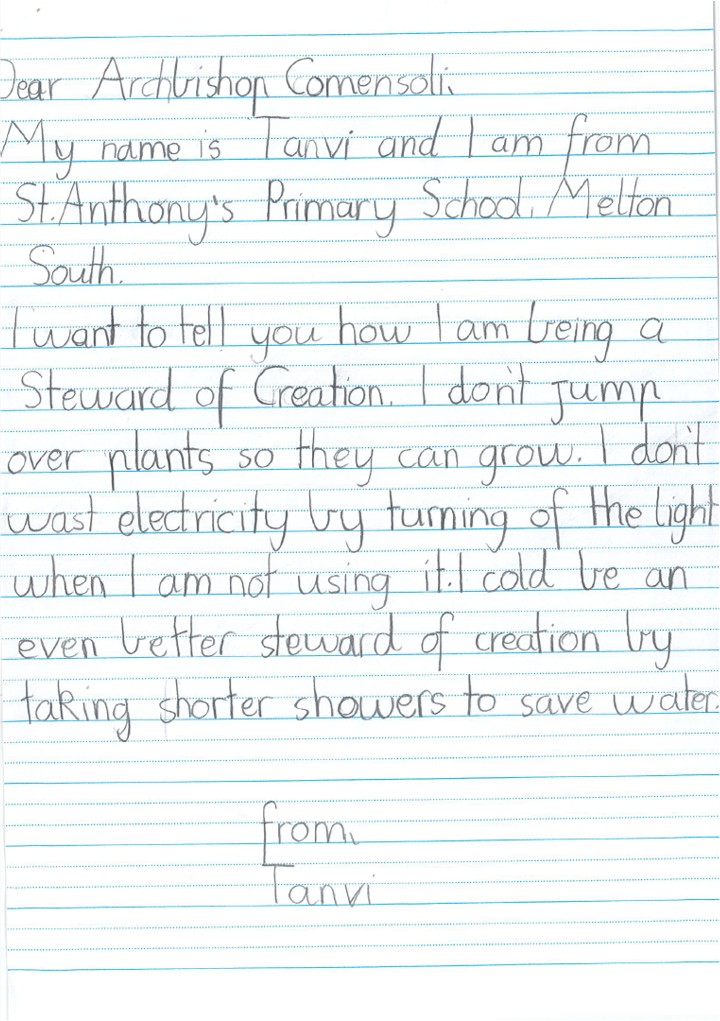 Dear Archbishop Comensoli,
My name is Tanvi and I am from
St. Anthony's Primary School, Melton
South.
I want to tell you how I am being a
Steward of Creation. I don't jump
over plants so they can grow. I don't
wast electricity by turning of the light
when I am not using it. I cold be an
even better steward of creation by
taking shorter showers to save water.
from,
Tanvi